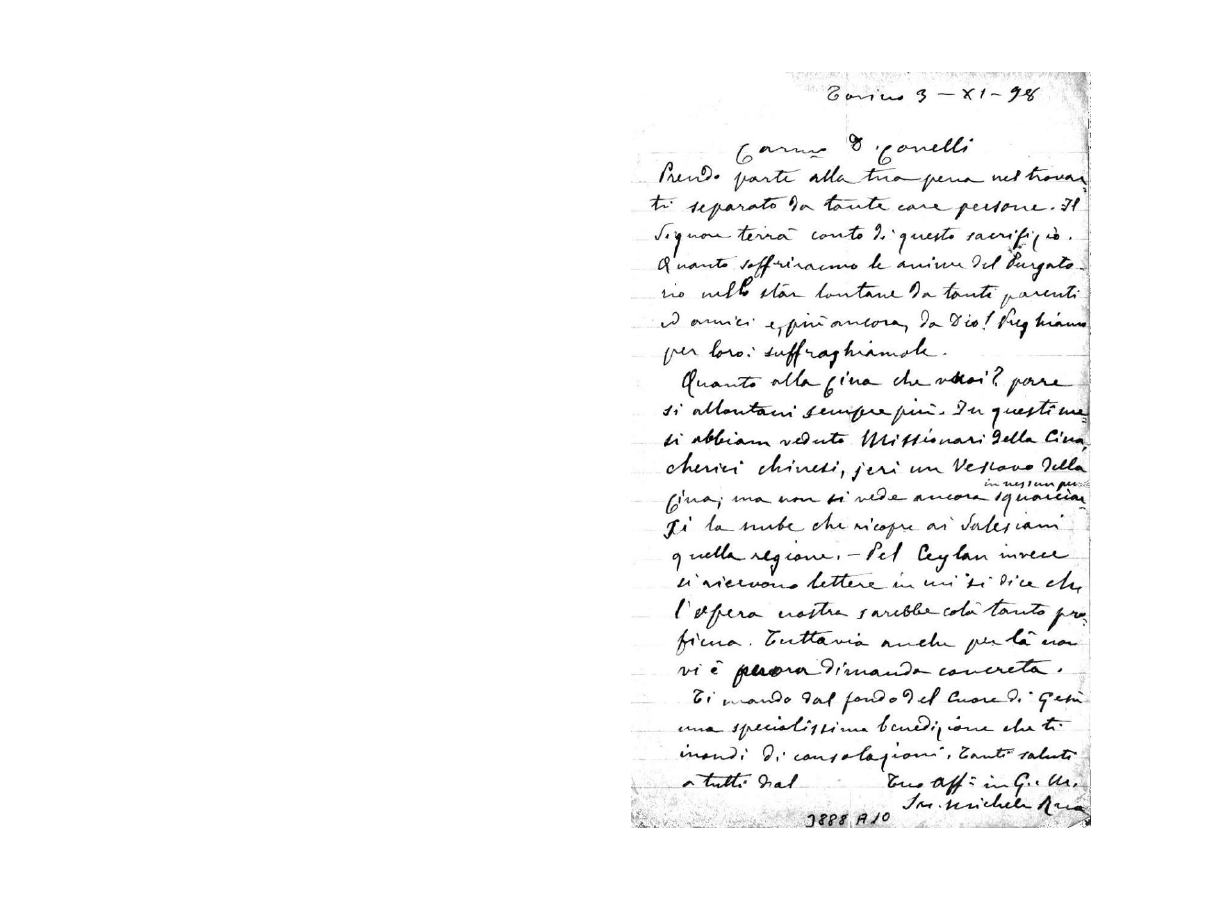 Torino 3 - XI - 98
Carmo D. Conelli
Prendo parte alla tua pena nel trovar-
ti separato da tante care persone. Il
Signore terrà conto di questo sacrifizio.
Quanto soffriranno le anime del Purgato-
rio nello star lontane da tanti parenti
ed amici e, più ancora, da Dio! Preghiamo
per loro: suffraghiamole.
Quanto alla Cina che vuoi? pare
si allontani sempre più. In questi me-
si abbiam veduto Missionari della Cina,
cherici chinesi, jeri un Vescovo della
in nessun pu
Cina; ma non si vede ancora squarciar-
si la nube che ricopre ai Salesiani
quella regione. - Pel Ceylan invece
si ricevono lettere in cui si dice che
l'opera nostra sarebbe colà tanto pro-
ficua. Tuttavia anche per là non
vi è perora dimanda concreta.
Ti mando dal fondo del Cuore di Gesù
una specialissima benedizione che ti
inondi di consolazioni. Tanti saluti
a tutti dal Tuo aff: in G. e M.
Sac. Michele Rua
3888 A 10